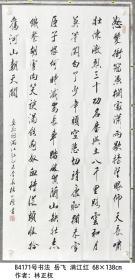 怒髮衝冠憑欄處瀟瀟雨歇抬望眼仰天長嘯
壯懷激烈三十功名塵與土八千里路雲和月
莫等閒白了少年頭空悲切靖康恥猶未雪
臣子恨何時滅駕長車踏破賀蘭山缺壯志飢餐
胡虜肉笑談渴飲匈奴血待從頭收拾
舊河山朝天闕
B4171号书法 岳飞 满江红 68×138cm
作者：林正权